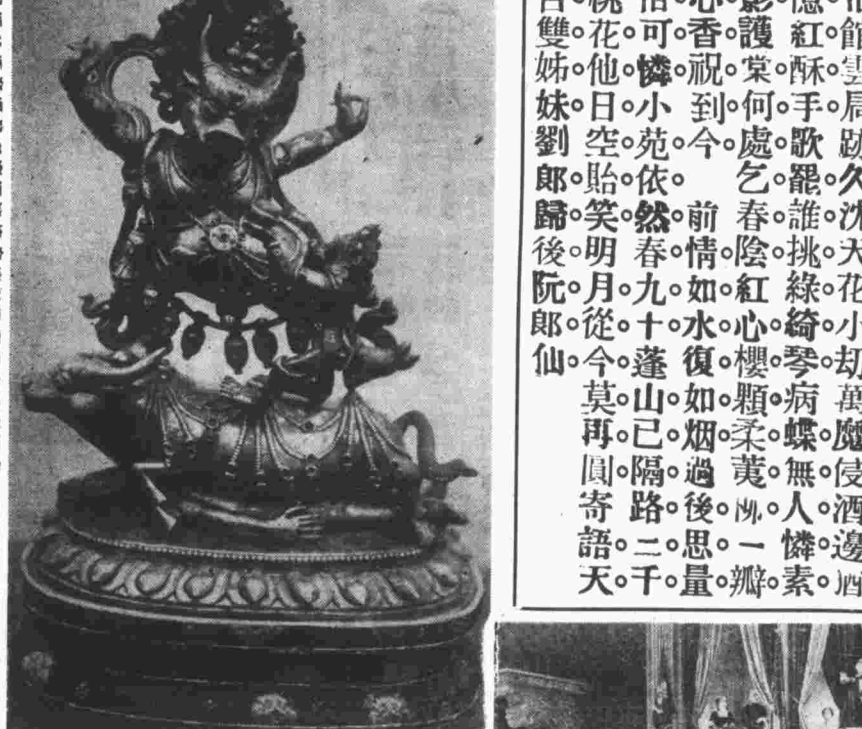 館雲局跡久沈天花小劫萬魔侵酒邊
憶紅酥手歌罷誰挑綠綺琴病蝶無人憐素
影護棠何處乞春陰紅心櫻顆柔荑一瓣
心香祝到今　前情如水復如烟過後思量
可憐小苑依然春九十蓬山已隔路二千
桃花他日空貽笑明月從今莫再圓寄語天
雙姊妹劉郎歸後阮郎仙